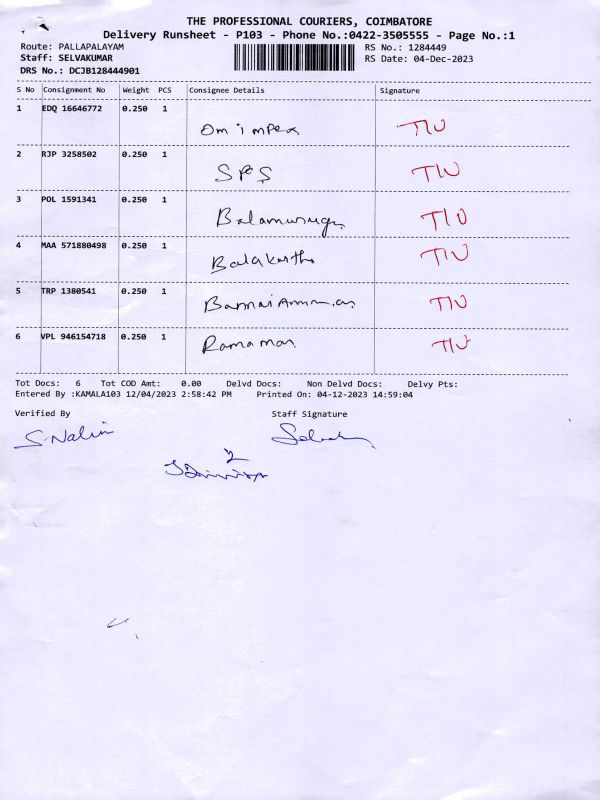 THE PROFESSIONAL COURIERS, COIMBATORE
Delivery Runsheet - P103 - Phone No.:0422-3505555 - Page No.:1
Route: PALLAPALAYAM RS No.: 1284449
Staff: SELVAKUMAR RS Date: 04-Dec-2023
DRS No.: DCJB128444901
S No Consignment No Weight PCS Consignee Details Signature
1 EDQ 16646772 0.250 1
Om impex TIU
2 RJP 3258502 0.250 1
SPS TIU
3 POL 1591341 0.250 1
Balamuruga TIU
4 MAA 571880498 0.250 1
TIU
5 TRP 1380541 0.250 1
TIU
6 VPL 946154718 0.250 1
TIU
Tot Docs: 6 Tot COD Amt: 0.00 Delvd Docs: Non Delvd Docs: Delvy Pts:
Entered By :KAMALA103 12/04/2023 2:58:42 PM Printed On: 04-12-2023 14:59:04
Verified By Staff Signature
S.Nalin